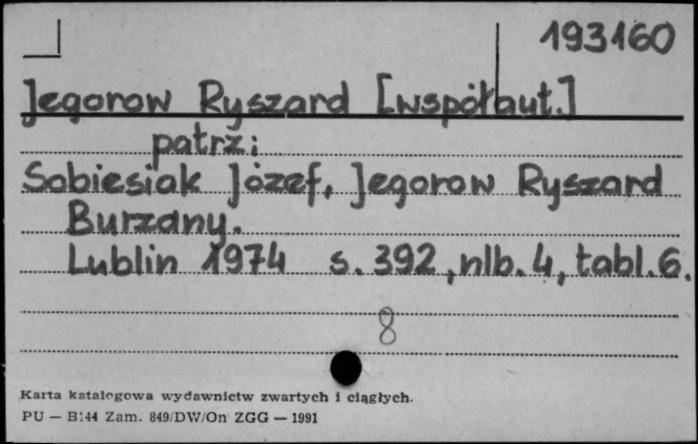 193160
Jegorow Ryszard [współaut.]
patrz:
Sobiesiak Józef, Jegorow Ryszard
Burzany.
Lublin 1974 s. 392, nlb. 4, tabl. 6.
8
Karta katalogowa wydawnictw zwartych i ciągłych.
PU — B144 Zam. 849/DW/On ZGG — 1991